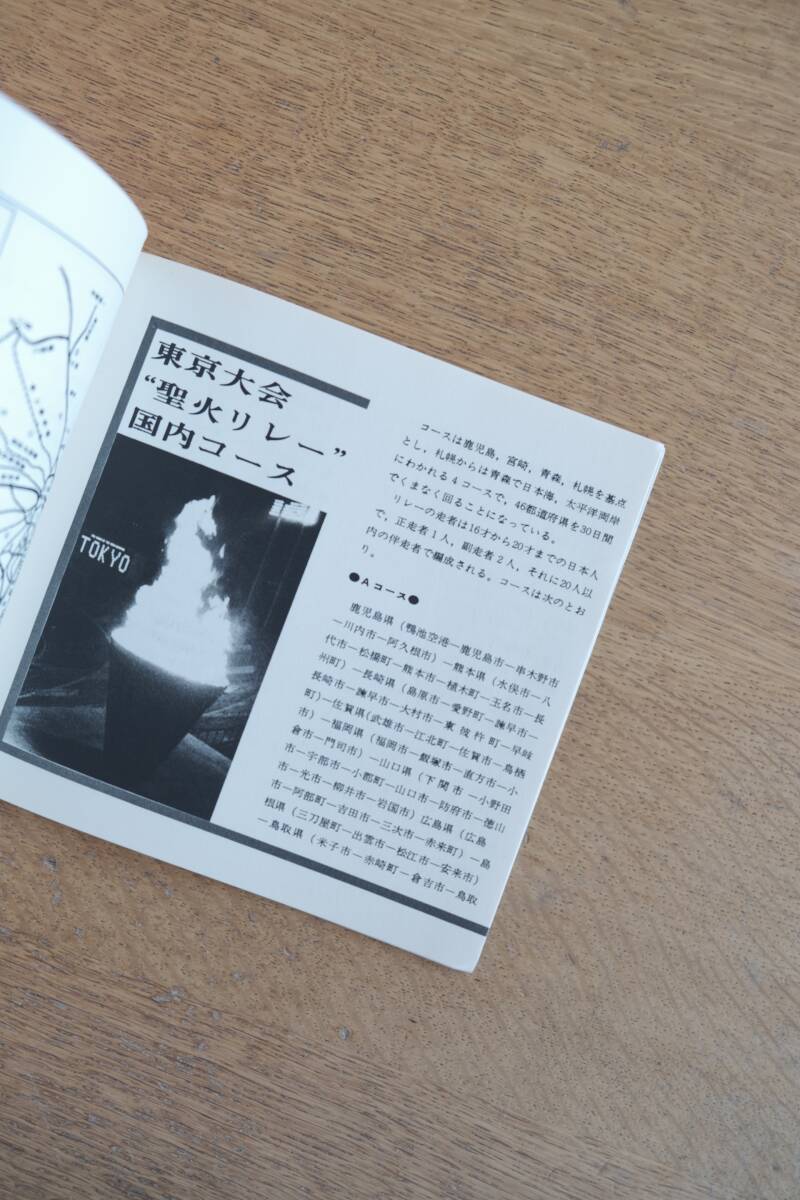 東京大会
“聖火リレー”
国内コース
TOKYO
コースは鹿児島，宮崎，青森，札幌を基点
とし，札幌からは青森で日本海，太平洋両岸
にわかれる4コースで，46都道府県を30日間
でくまなく回ることになっている。
リレーの走者は16才から20才までの日本人
で，正走者1人，副走者2人，それに20人以
内の伴走者で編成される。コースは次のとお
り。
●Aコース●
鹿児島県（鴨池空港―鹿児島市―串木野市
―川内市―阿久根市）―熊本県（水俣市―八
代市―松橋町―熊本市―植木町―玉名市―長
州町）―長崎県（島原市―愛野町―諫早市―
長崎市―諫早市―大村市―東彼杵町―早岐
町）―佐賀県（武雄市―江北町―佐賀市―鳥栖
市）―福岡県（福岡市―飯塚市―直方市―小
倉市―門司市）―山口県（下関市―小野田
市―宇部市―小郡町―山口市―防府市―徳山
市―光市―柳井市―岩国市）広島県（広島
市―阿部町―吉田市―三次市―赤来町）―島
根県（三刀屋町―出雲市―松江市―安来市）
―鳥取県（米子市―赤崎町―倉吉市―鳥取